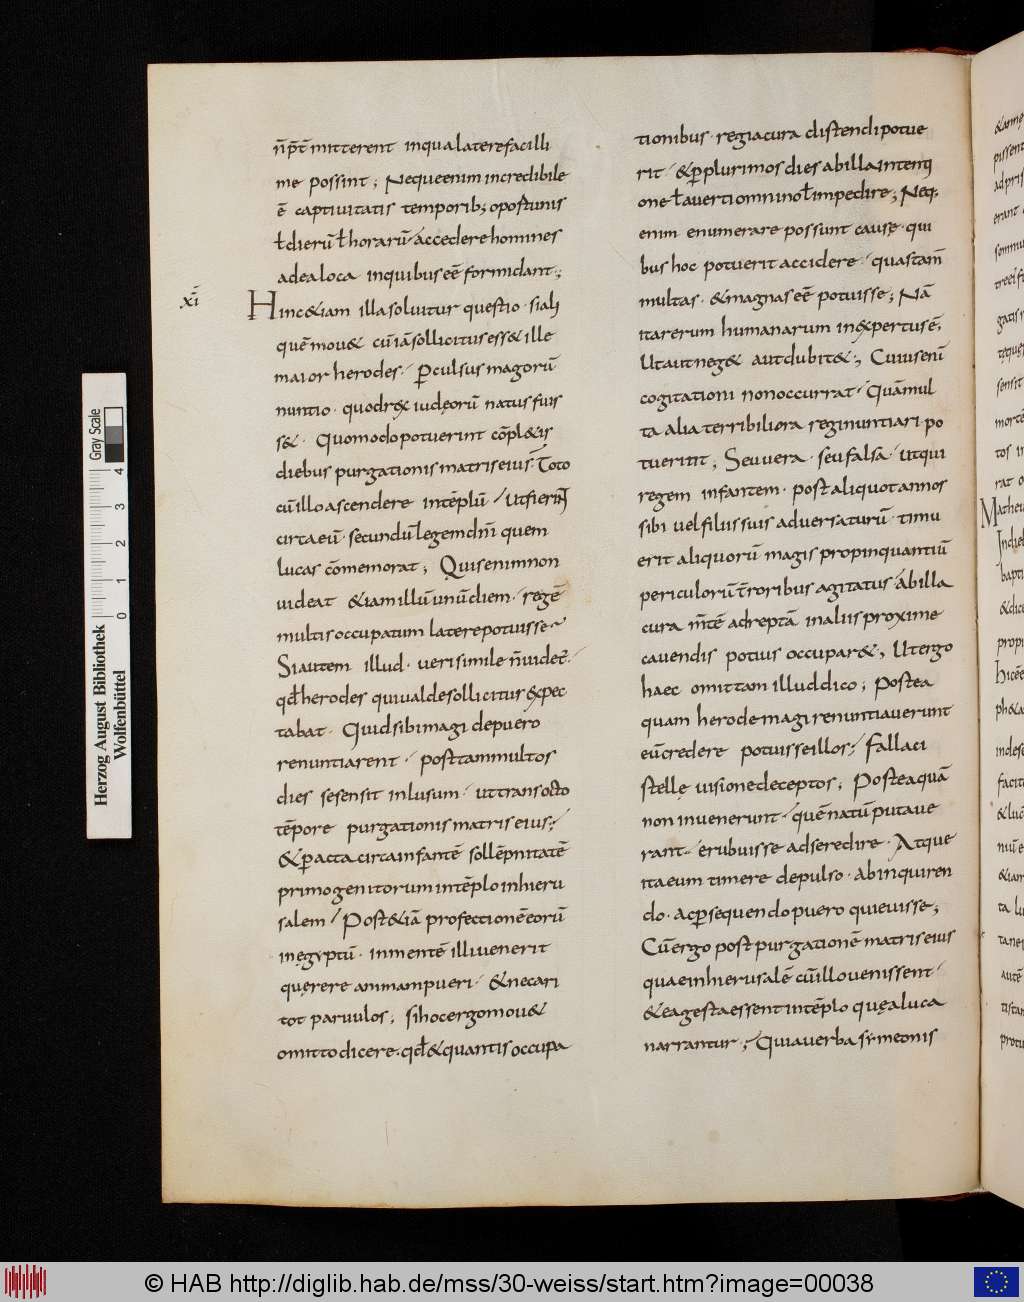 n̄ p̄t mitterent inqua laterefacilli
me possint; Nequeenim incredibile
ē captivitatis temporib; oportunis
ƚ dierū ƚ horarū accedere homines
adealoca inquibus eē formidant;
xi
Hinc &iam illa soluitur questio · siali
quē mou& cū iā sollicitus ess& ille
maior herodes · Perculsus magorū
nuntio · quod rex iudęorū natus fuis
s& · Quomodo potuerint cōpl&is
diebus purgationis matris eius · Toto
cū illo ascendere intēplū / utfierent
circa eū · secundū legem dn̄i quem
lucas cōmemorat; Quis enim non
uideat &iam illū unū diem · regē
multis occupatum latere potuisse ·
Si autem illud · ueri simile n̄ uidet̄ ·
qd̄ herodes qui ualde sollicitur expec
tabat · Quid sibi magi de puero
renuntiarent · post tam multos
dies se sensit inlusum · ut trans octo
tēpore purgationis matris eius;
& peracta circa infantē sollēpnitatē
primogenitorum intēplo inhieru
salem / Post &iā profectionē eorū
in ęgyptū · in mentē illi uenerit
quęrere animam pueri · & necari
tot paruulos; si hoc ergo mou&
omitto dicere · qd̄ & quantis occupa
tionibus · regia cura distendi potue
rit · & per plurimos dies ab illa intenti
one ƚ auerti omnino ƚ impedire; Neq;
enim enumerare possunt causę · qui
bus hoc potuerit accidere · quas tam̄
multas · & magnas eē potuisse; Nā
ita rerum humanarum inexpertus ē,
Ut aut neg& aut dubit&; Cui usenī
cogitationi non occurrat · Quā mul
ta alia terribiliora regi nuntiari po
tuerint; Seu uera · seu falsa · ut qui
regem infantem · post aliquot annos
sibi uel filiis suis aduersaturū · timu
erit aliquorū magis propinquantiū
periculorū t̄roribus agitatus ab illa
cura m̄te adreptā in aliis proxime
cauendis potius occupar&; Ut ergo
haec omittam illud dico; Postea
quam herode magi renuntiauerunt
eū credere potuisse illos; Fallaci
stellę uisione deceptos; Postea quā
non inuenerunt · quē natū putaue
rant · erubuisse ad se redire · Atque
ita eum timere depulso · ab inquiren
do · ac persequendo puero quieuisse;
Cū ergo post purgationē matris eius
quae in hierusalē cū illo uenissent ·
& ea gesta essent intēplo quę a luca
narrantur; Quia uerba symeonis
Herzog August Bibliothek
Wolfenbüttel
Gray Scale
0 1 2 3 4
© HAB http://diglib.hab.de/mss/30-weiss/start.htm?image=00038